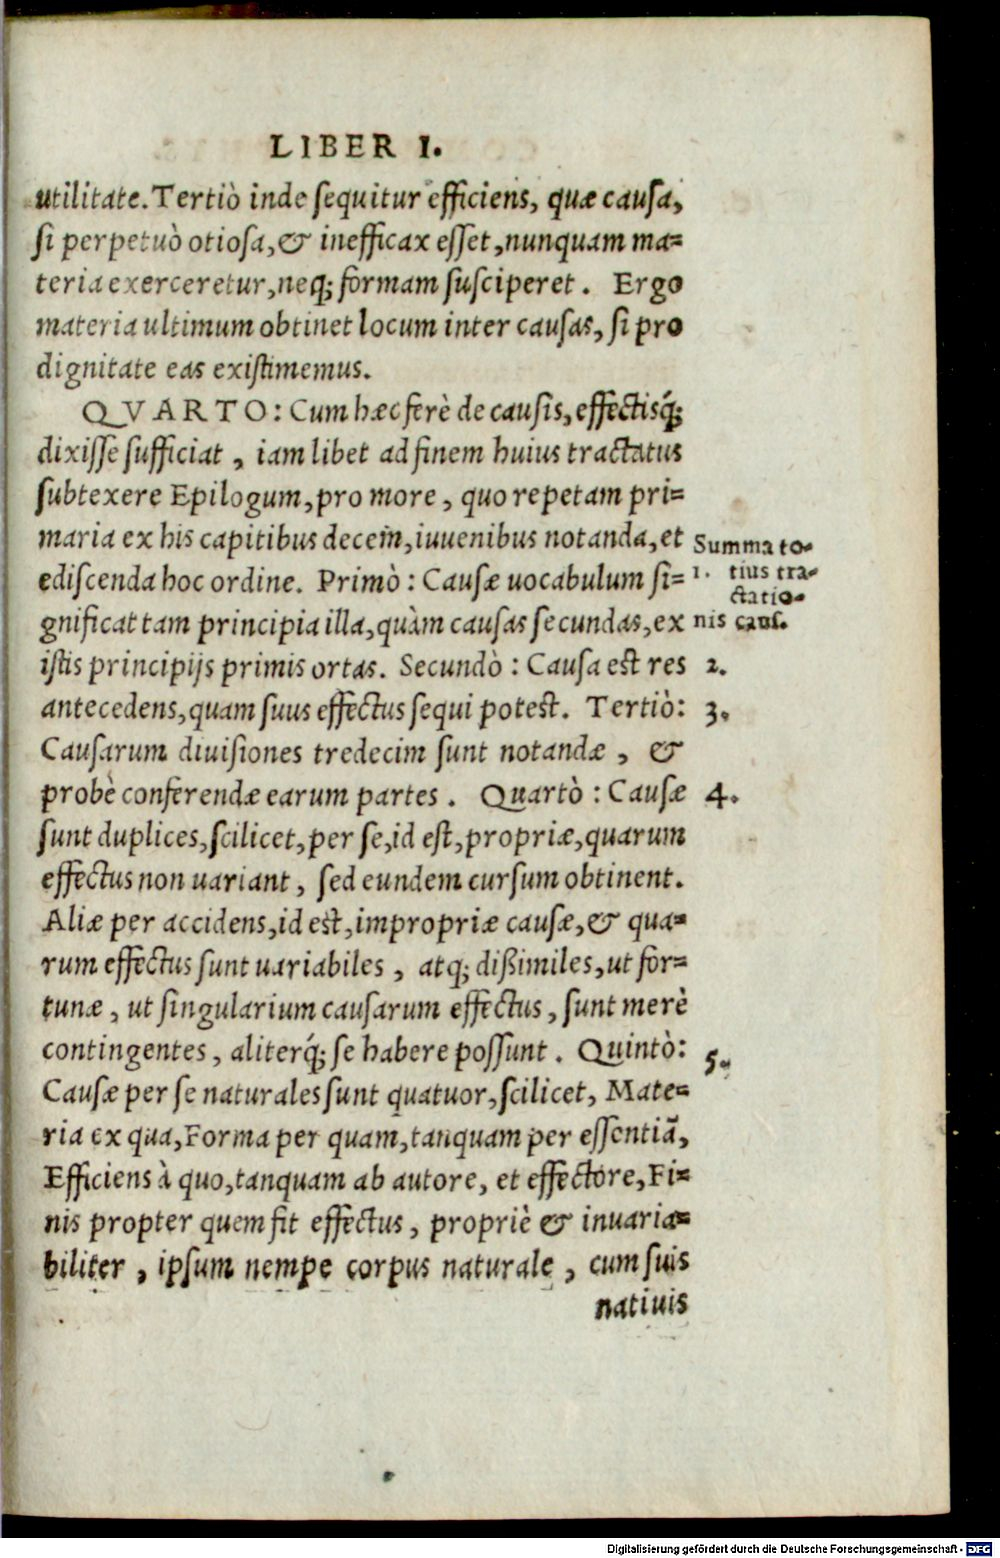 LIBER I.
utilitate. Tertiò inde sequitur efficiens, quæ causa,
si perpetuò otiosa, & inefficax esset, nunquam ma=
teria exerceretur, neq; formam susciperet. Ergo
materia ultimum obtinet locum inter causas, si pro
dignitate eas existimemus.
QVARTO: Cum hæc ferè de causis, effectisq́;
dixisse sufficiat, iam libet ad finem huius tractatus
subtexere Epilogum, pro more, quo repetam pri=
maria ex his capitibus decem, iuuenibus notanda, et
Summa to=
ediscenda hoc ordine. Primò: Causæ uocabulum si=
1. tius tra=
ctatio=
gnificat tam principia illa, quàm causas secundas, ex
nis caus.
istis principijs primis ortas. Secundò: Causa est res
2.
antecedens, quam suus effectus sequi potest. Tertiò:
3.
Causarum diuisiones tredecim sunt notandæ, &
probè conferendæ earum partes. Quartò: Causæ
4.
sunt duplices, scilicet, per se, id est, propriæ, quarum
effectus non uariant, sed eundem cursum obtinent.
Aliæ per accidens, id est, impropriæ causæ, & qua=
rum effectus sunt uariabiles, atq; dißimiles, ut for=
tunæ, ut singularium causarum effectus, sunt merè
contingentes, aliterq́; se habere possunt. Quintò:
5.
Causæ per se naturales sunt quatuor, scilicet, Mate=
ria ex qua, Forma per quam, tanquam per essentiã,
Efficiens à quo, tanquam ab autore, et effectore, Fi=
nis propter quem fit effectus, propriè & inuaria=
biliter, ipsum nempe corpus naturale, cum suis
natiuis
Digitalisierung gefördert durch die Deutsche Forschungsgemeinschaft - DFG